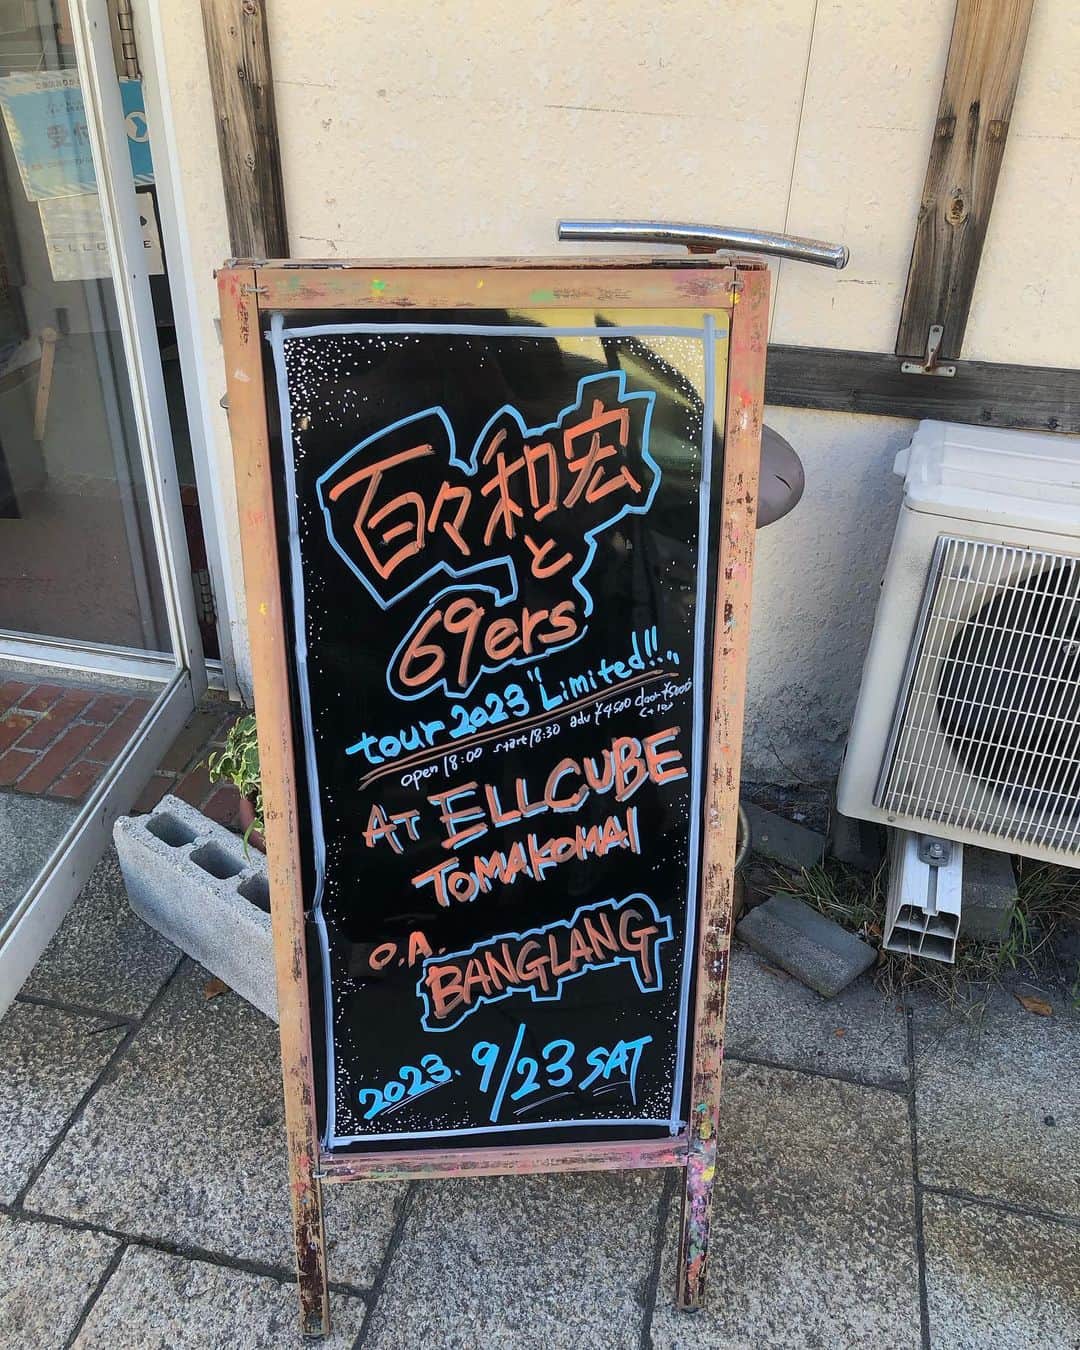 百々和宏
と
69ers
tour 2023 "Limited!!"
open 18:00 start 18:30 adv ¥4500 door ¥5000
(+1D)
AT ELLCUBE
TOMAKOMAI
O.A.
BANGLANG
2023. 9/23 SAT
ELLCUBE